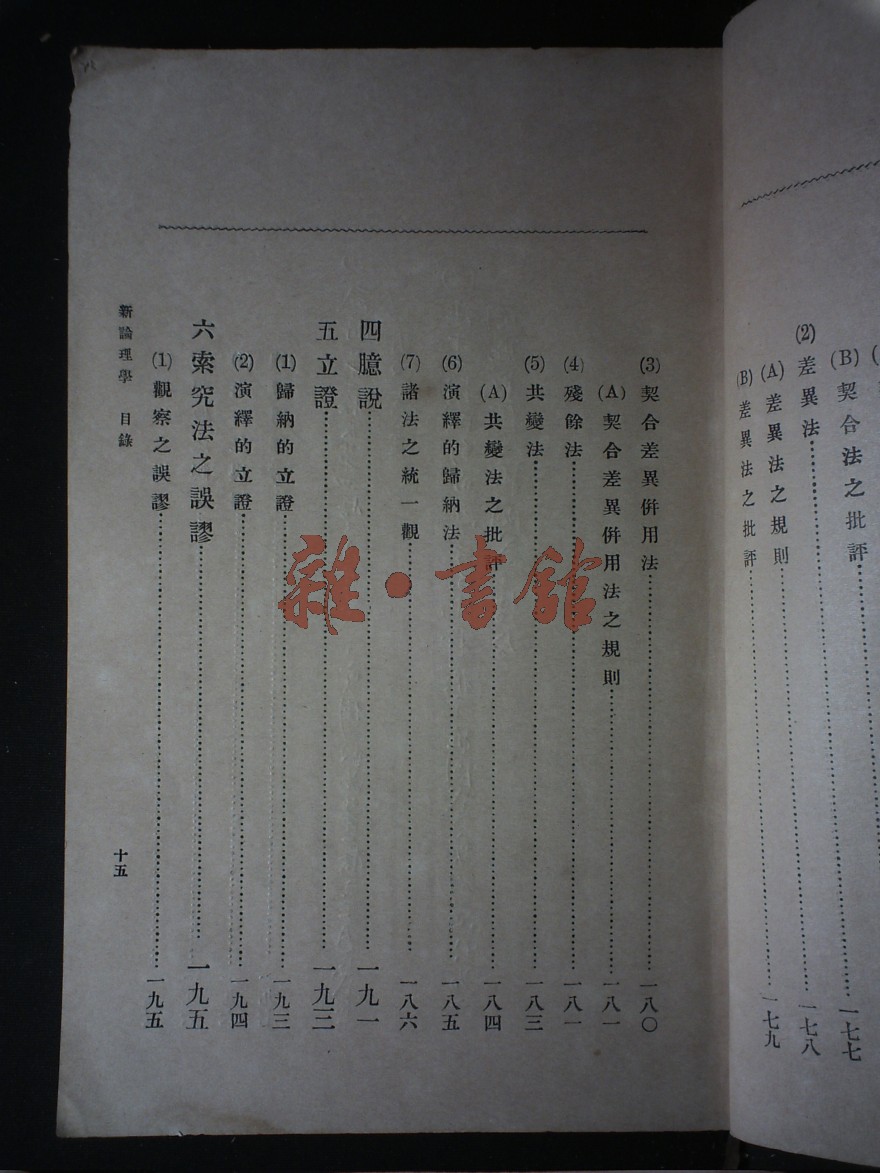 (B)契合法之批評……一七七
(2)差異法……一七八
(A)差異法之規則
(B)差異法之批評……一七九
(3)契合差異併用法……一八〇
(A)契合差異併用法之規則……一八一
(4)殘餘法……一八一
(5)共變法……一八三
(A)共變法之批評……一八四
(6)演繹的歸納法……一八五
(7)諸法之統一觀……一八六
四臆說……一九一
五立證……一九三
(1)歸納的立證……一九三
(2)演繹的立證……一九四
六索究法之誤謬……一九五
(1)觀察之誤謬……一九五
新論理學 目錄
十五
雜·書館